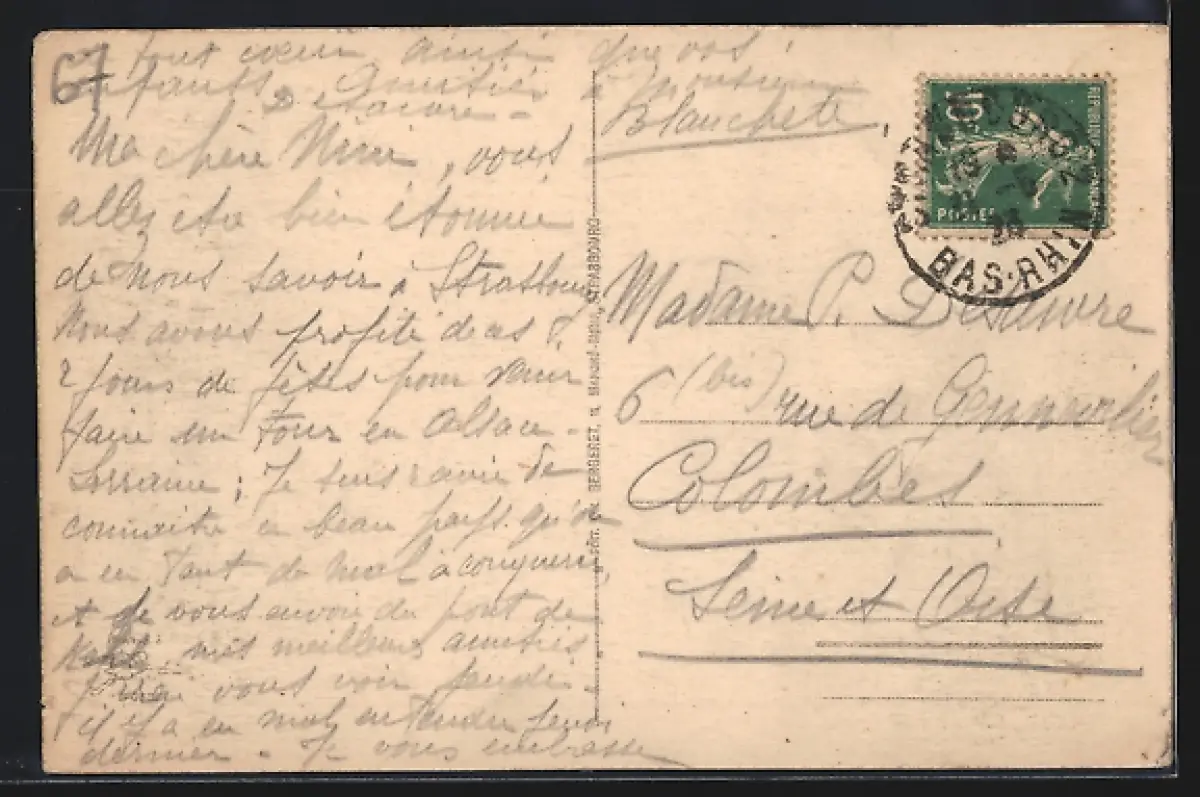 67
de tout cœur ainsi que vos
enfants. Amitiés à Monsieur
Desaivre -
Blanchette,
Ma chère Nini, vous
allez être bien étonnée
de nous savoir à Strasbourg
Nous avons profité de ces
2 jours de fêtes pour venir
faire un tour en Alsace -
Lorraine ; Je suis ravie de
connaitre ce beau pays qu'on
a eu tant de mal à conquérir,
et je vous envoie du pont de
Kehl mes meilleures amitiés.
J'irai vous voir jeudi -
il y a eu mal entendu jeudi
dernier - Je vous embrasse
BERGERET, STRASBOURG
10
REPUBLIQUE FRANCAISE
POSTES
STRASBOURG
BAS-RHIN
Madame P. Desaivre
6 (bis) rue de Gennevilliers
Colombes
Seine et Oise